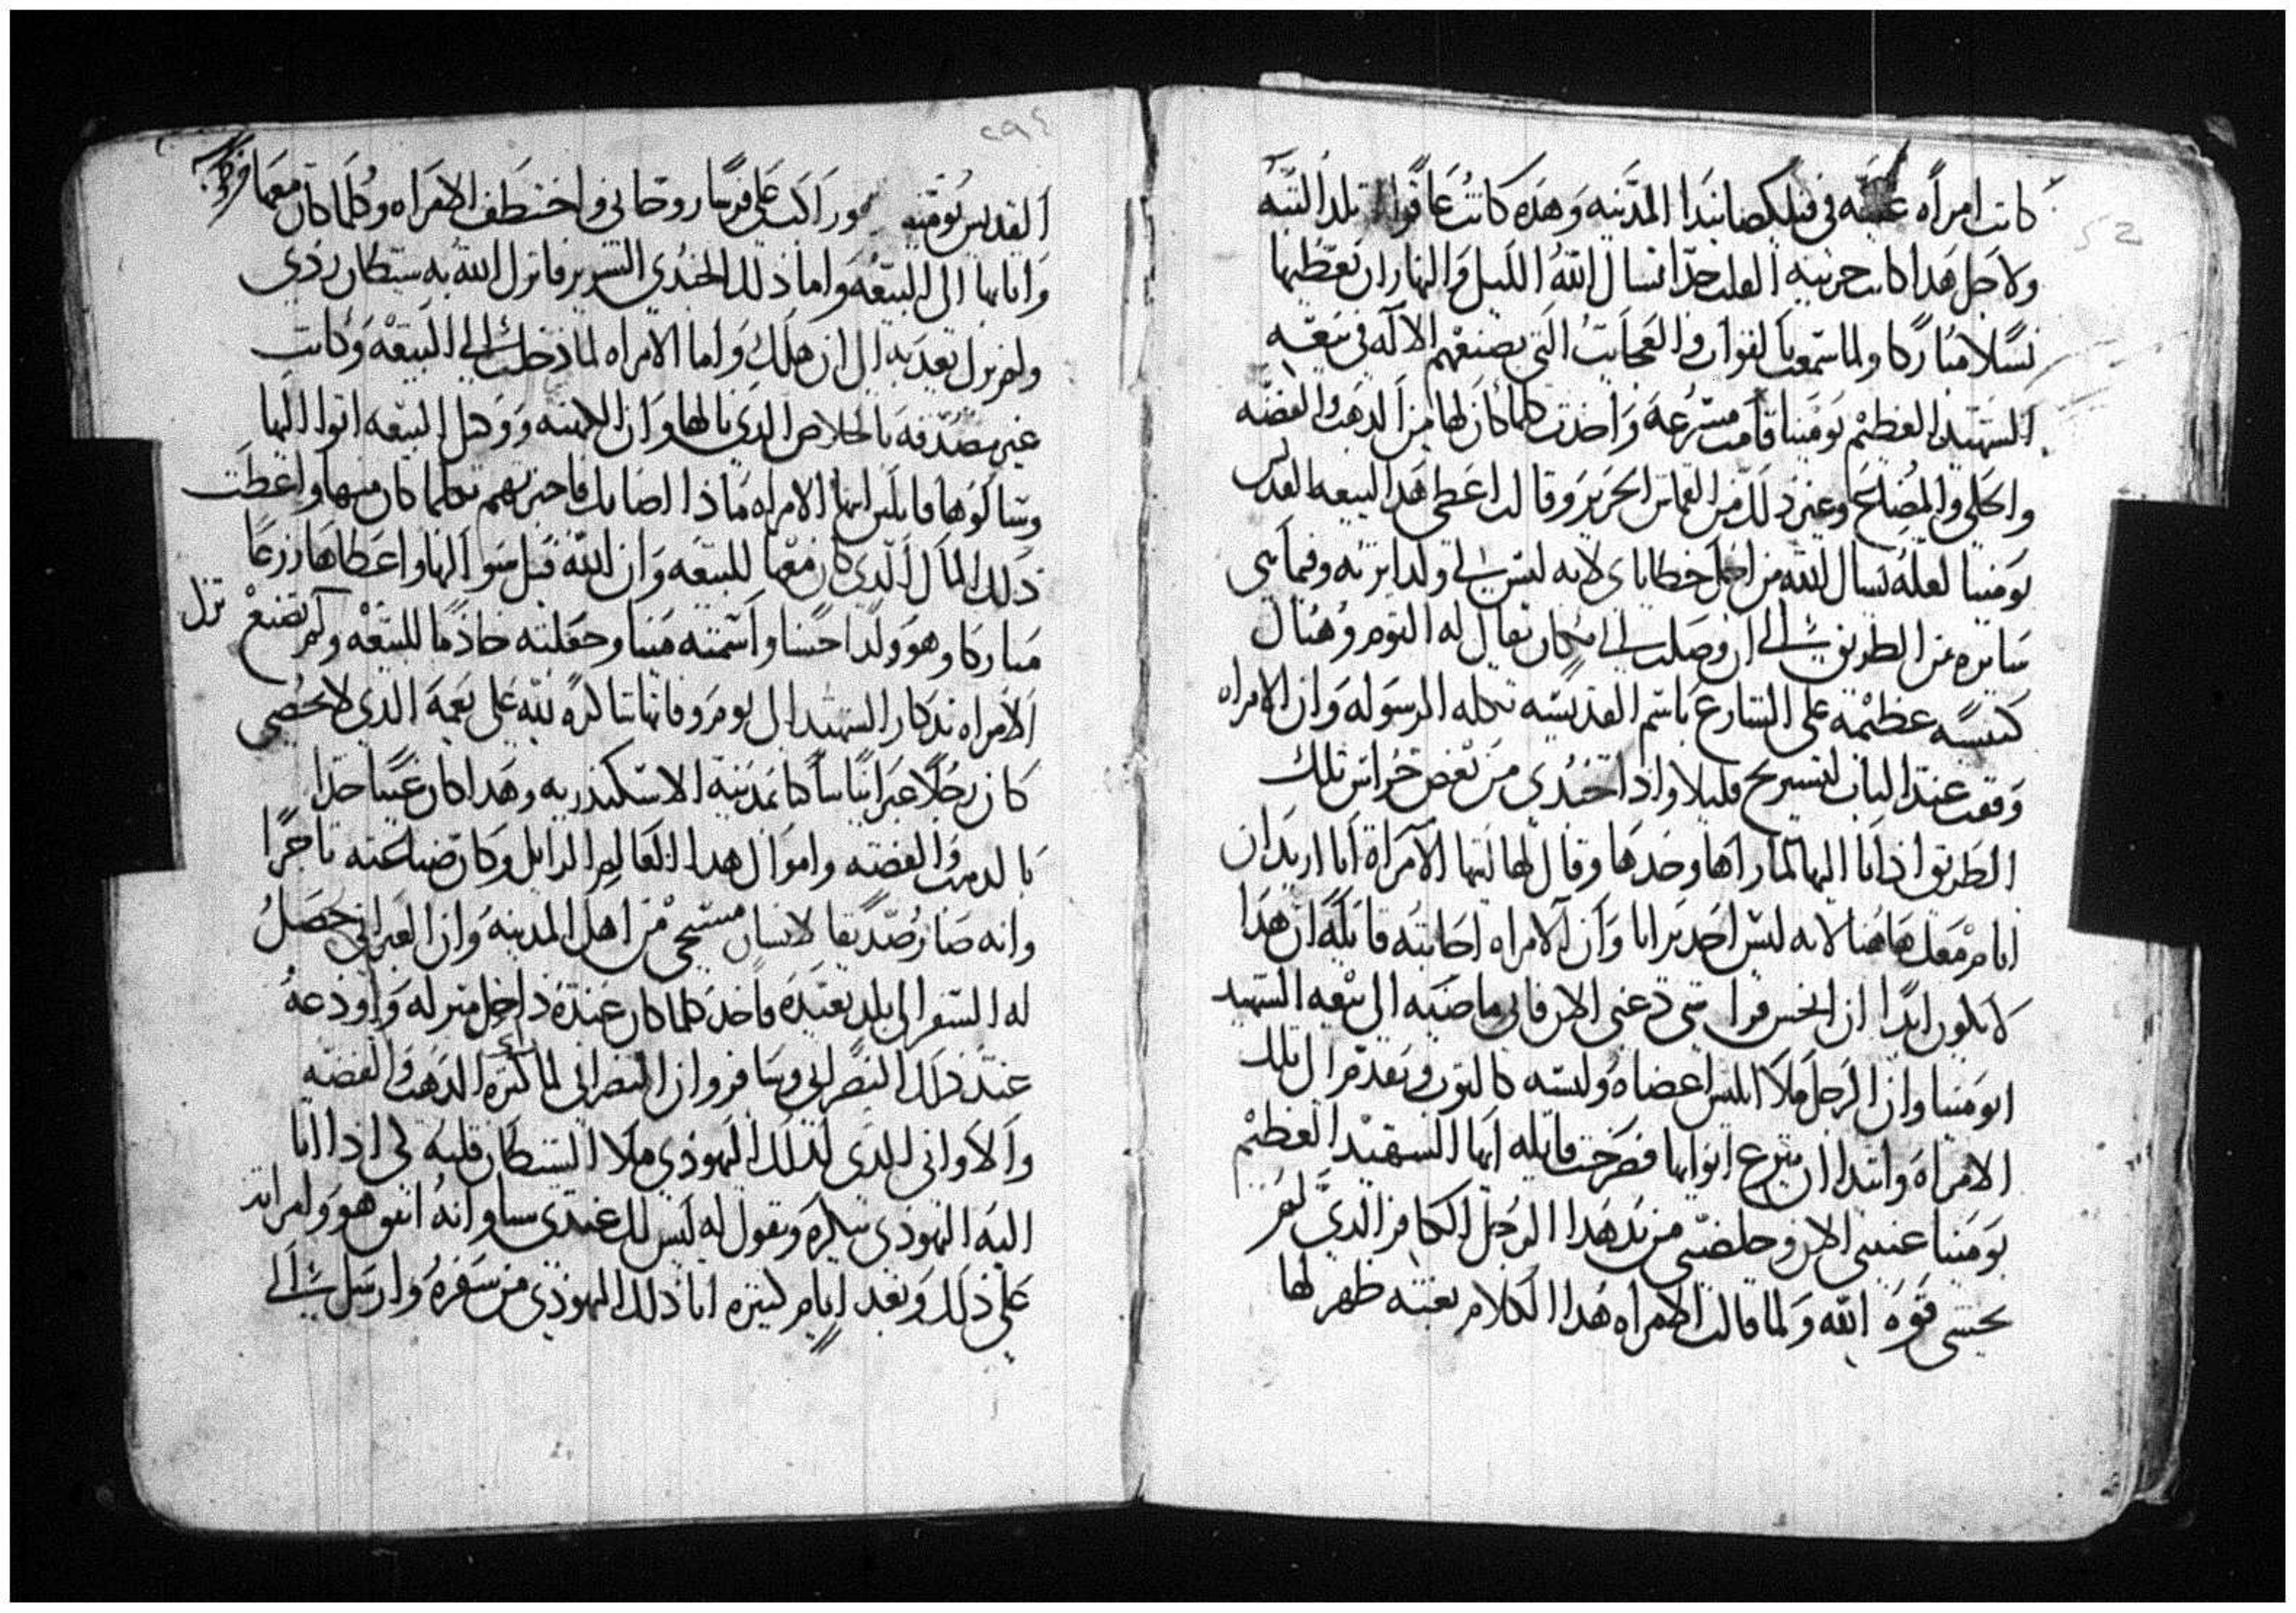 كانت امرأه غنيه في فيلكصانبدا المدينه وهذه كانت عاقرا لم تلد البته
ولاجل هدا كانت حزينه القلب جدا تسال الله الليل والنهار ان يعطيها
نسلا مباركا ولما سمعت بالقوات والعجايب التي يصنعهم الاله في بيعه
الشهيد العظيم بومينا قامت مسرعه واخدت كلما كان لها من الدهب والفضه
والحلي والمصاغ وغير دلك من القماش الحرير وقالت اعطي هدا لبيعه القديس
بومينا لعله يسال الله من اجل خطاياي لانه ليس لي ولدا يرثه وفيما هي
سايره في الطريق الى ان وصلت الى مكان يقال له اليوم وهناك
كنيسه عظيمه على الشارع باسم القديسه تكله الرسوله وان الامراه
وقفت عند الباب لتستريح قليلا واذا جندي من بعض حراس تلك
الطريق اذ اتا اليها لما راها وحدها وقال لها ايتها الامراة انا اريد ان
انام معك هاهنا لانه ليس احد يرانا وان الامراه اجابته قايلة ان هدا
لا يكون ابدا ان انجس قرابيني دعني الان فاني ماضيه الى بيعه الشهيد
ابو مينا وان الرجل ملا ابليس اعضاه ولبسه كالثوب وتقدم الى تلك
الامراه وابتدا ان ينزع اثوابها فصرخت قايله ايها الشهيد العظيم
بومينا عينني الان وخلصني من يد هدا الرجل الكافر الدي لم
يخشى قوه الله ولما قالت الامراه هدا الكلام بغته ظهر لها
٢٩٤
القديس بومينه وراكب على فرسا روحاني واختطف الامراه وكلما كان معها
واتا بها الى البيعه واما ذلك الجندي الشرير فانزل الله به شيطان ردي
ولم يزل يعذبه الى ان هلك واما الامراه لما دخلت الى البيعه وكانت
غير مصدقه بالخلاص الدي نالها وان الكهنه ووكيل البيعه اتوا اليها
وسالوها قايلين ايتها الامراه ماذا اصابك فاخبرتهم بكلما كان منها واعطت
ذلك المال الدي كان معها للبيعه وان الله قبل سوالها واعطاها زرعا
مباركا وهو ولدا حسنا واسمته مينا وجعلته خادما للبيعه ولم تزل تصنع
الامراه تدكار الشهيد الى يوم وفاتها شاكره لله على نعمه الذي لا تحصى
كان رجلا عبرانيا ساكنا بمدينة الاسكندريه وهدا كان غنيا جدا
بالدهب والفضه واموال هدا العالم الزايل وكان صناعته تاجرا
وانه صار صديقا لانسان مسيحي من اهل المدينه وان العبراني حصل
له السفر الى بلد بعيده فاخد كلما كان عنده داخل منزله واودعه
عند ذلك النصراني وسافر وان النصراني لما راي كثره الدهب والفضه
والاواني الدي لدلك اليهودي ملا الشيطان قلبه لكي اذا اتا
اليه اليهودي ينكره ويقول له ليس لك عندي شيا وانه اتفق هو وامراته
على ذلك وبعد ايام كثيره اتا ذلك اليهودي من سفره وارسل الى